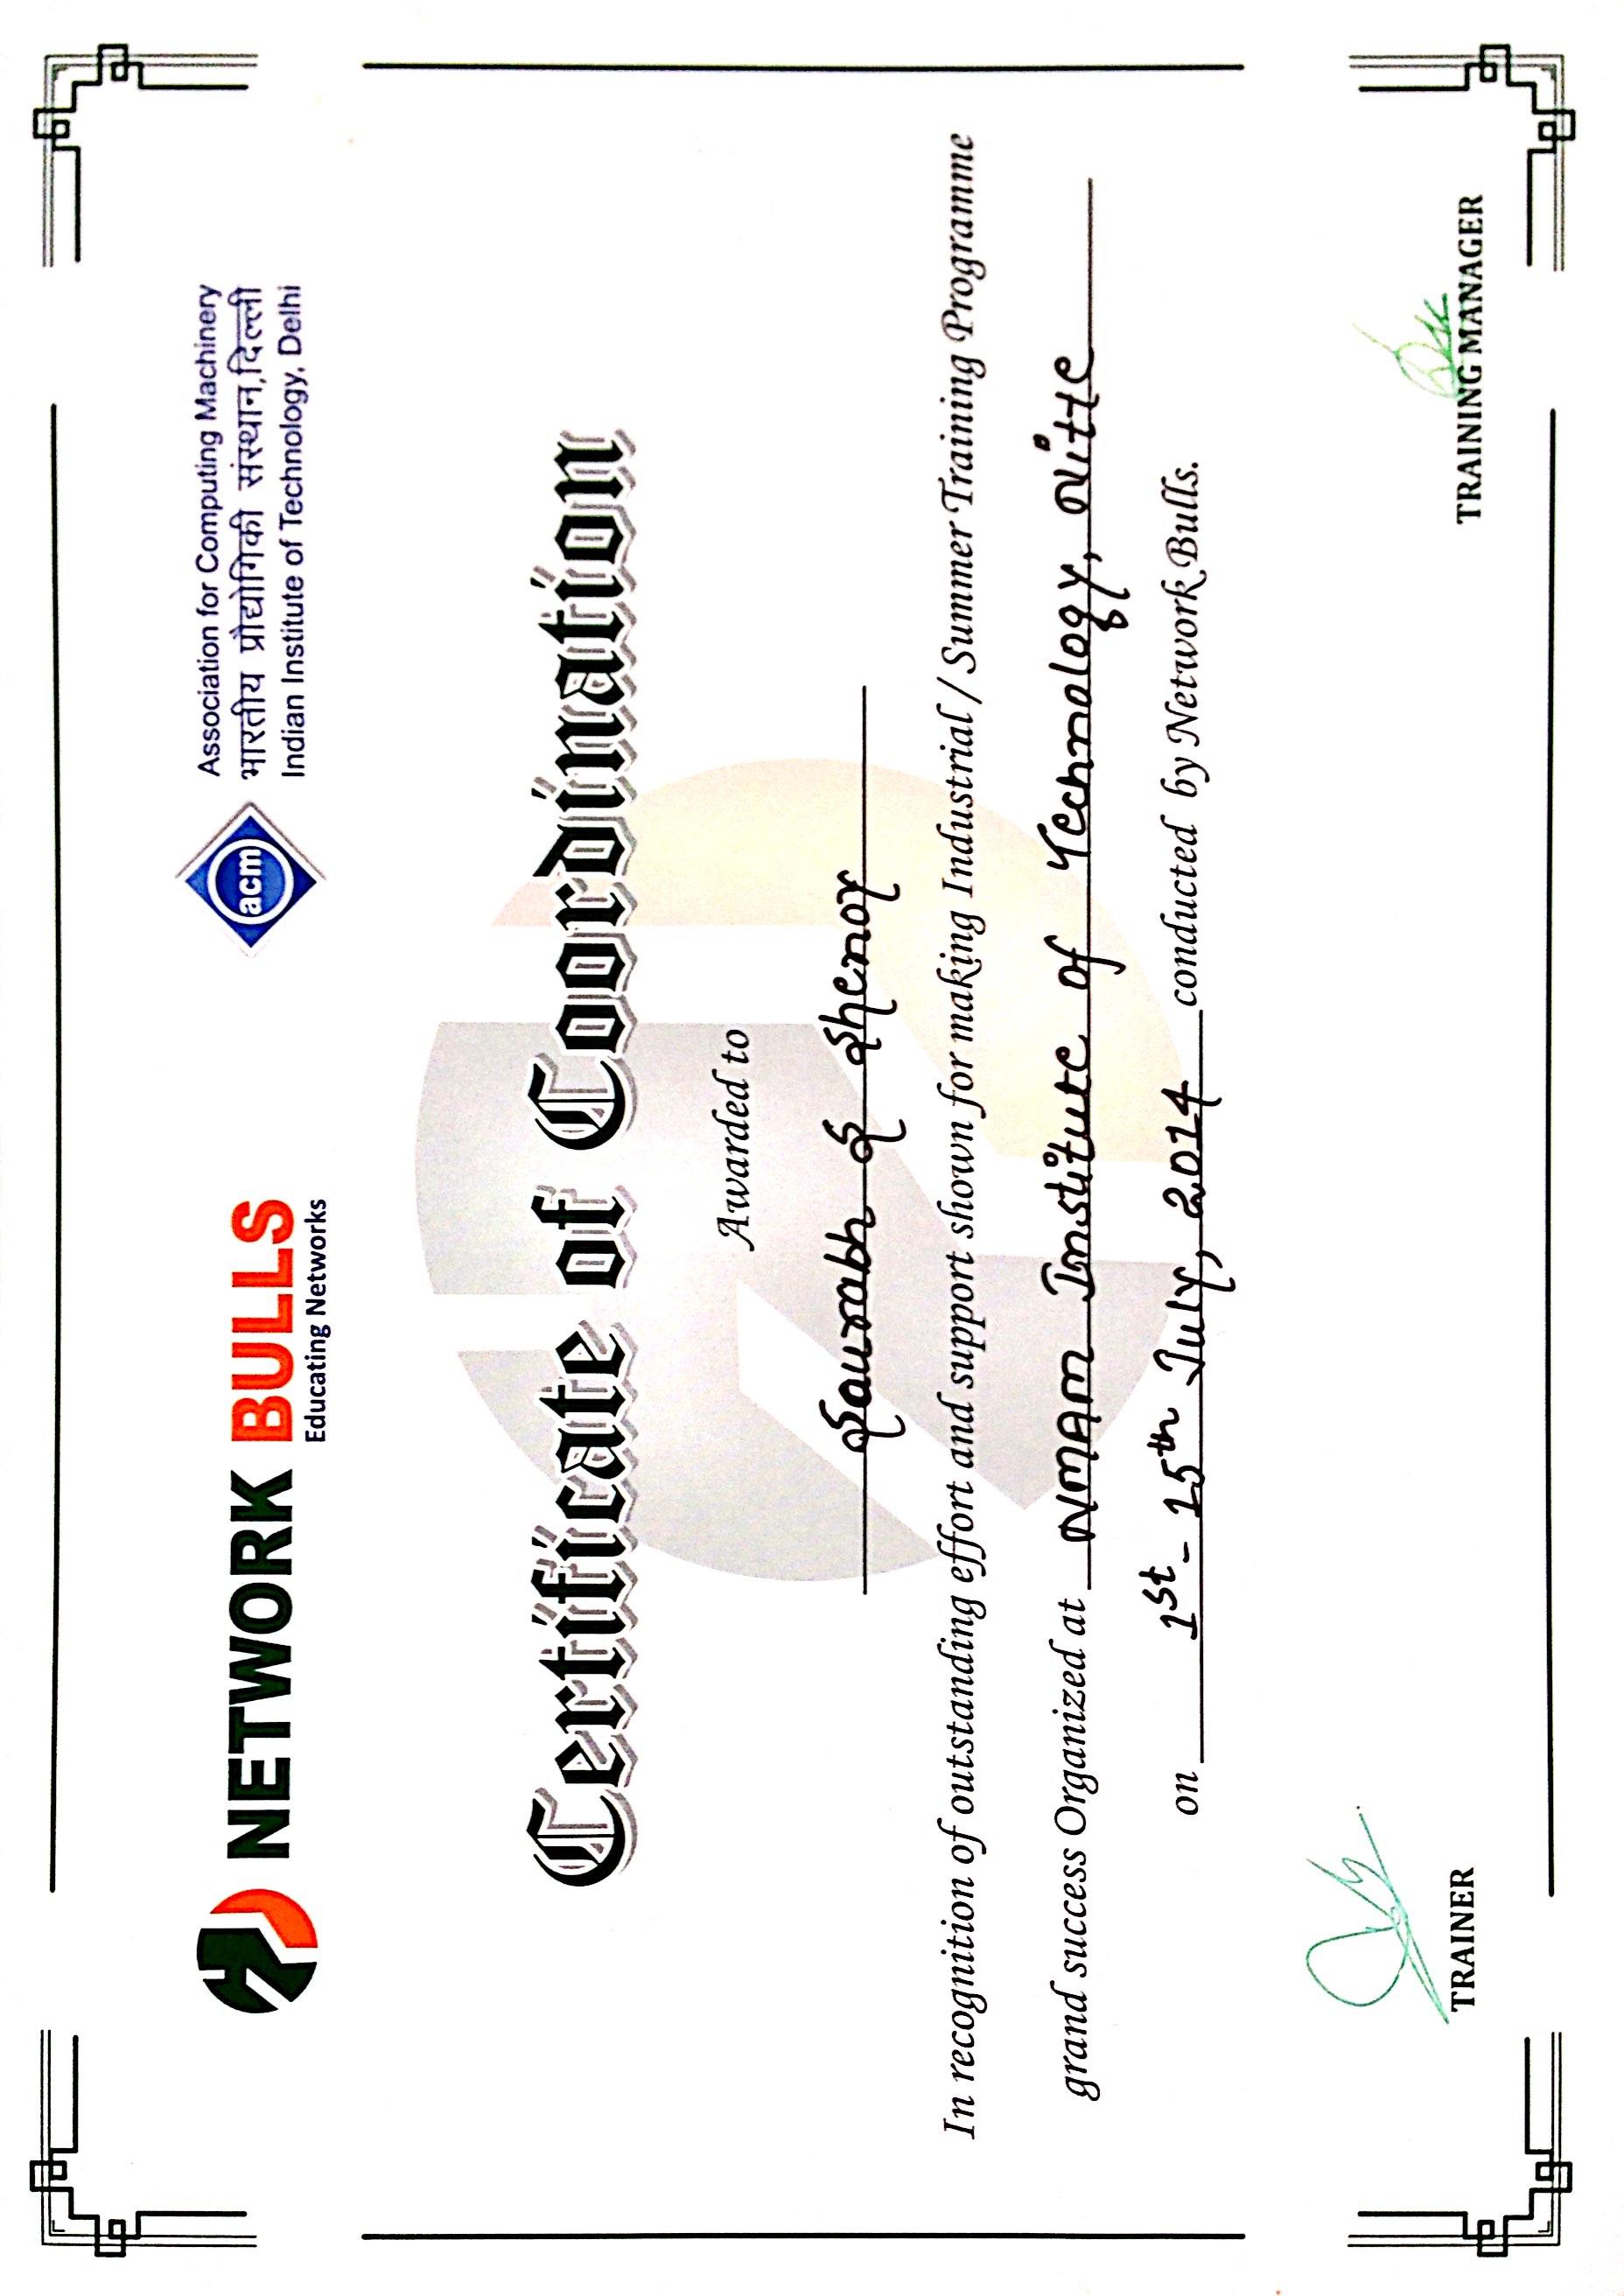 NETWORK BULLS
Educating Networks
acm
Association for Computing Machinery
भारतीय प्रौद्योगिकी संस्थान,दिल्ली
Indian Institute of Technology, Delhi
Certificate of Coordination
Awarded to
Saurabh S Shenoy
In recognition of outstanding effort and support shown for making Industrial / Summer Training Programme
grand success Organized at NMAM Institute of Technology, Nitte
on 1st - 15th July, 2014 conducted by Network Bulls.
TRAINER
TRAINING MANAGER